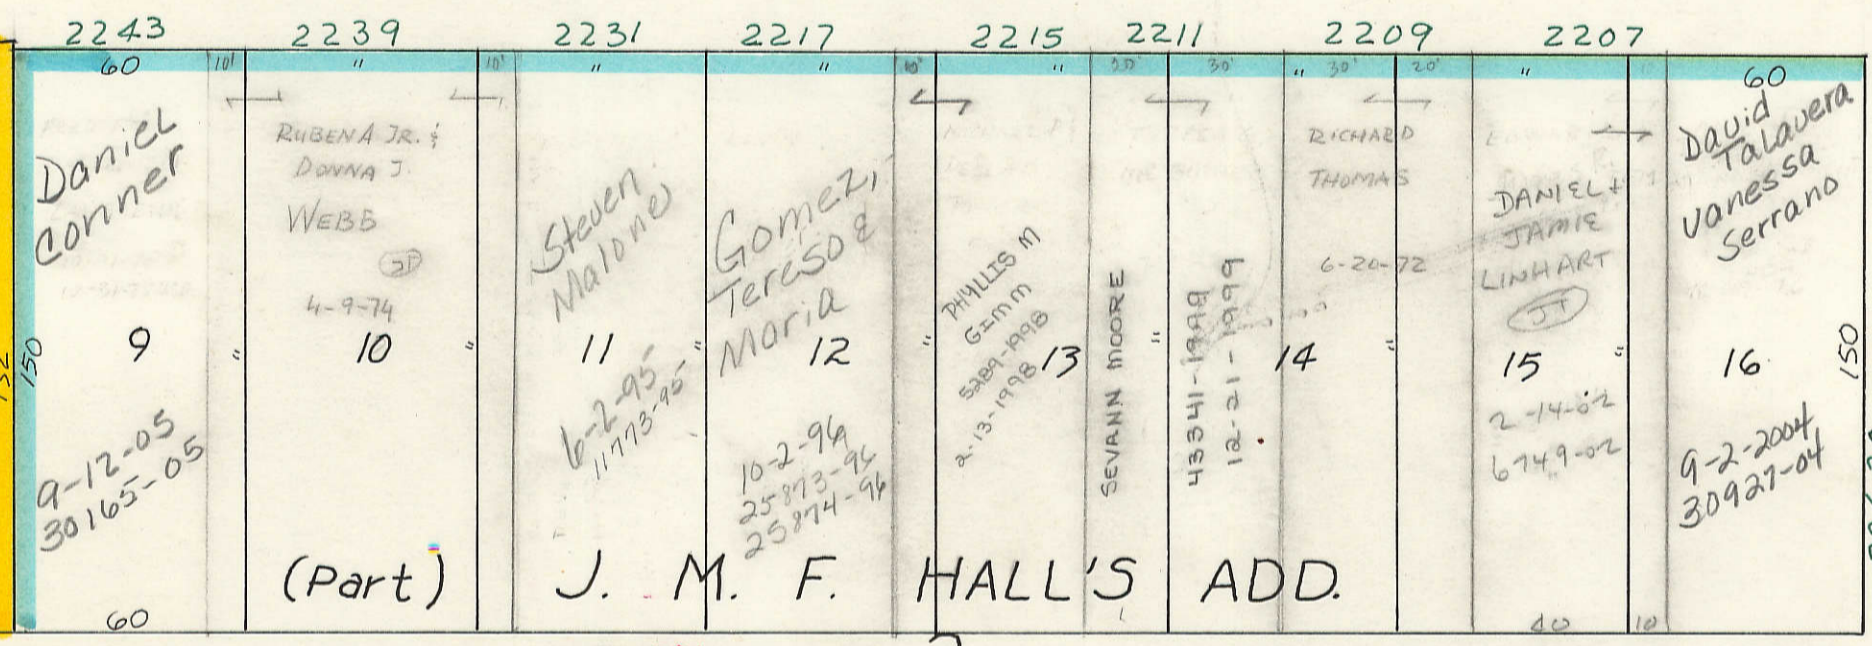 2243 2239 2231 2217 2215 2211 2209 2207
60 10' " 10' " " 10' " 20' 30' " 30' 20' " 60
Daniel
Conner
9
150
9-12-05
30165-05
60
RUBEN A JR. &
DONNA J.
WEBB
JT
4-9-74
" 10 "
Steven
Malone
11 "
6-2-95
11773-95
Gomez,
Tereso &
Maria
12 "
10-2-96
25873-96
25874-96
PHYLLIS M
GIMM
5289-1998
2-13-1998
13 "
SEVANN MOORE
43341-1999
12-21-1999
RICHARD
THOMAS
6-20-72
14 "
DANIEL +
JAMIE
LINHART
JT
15 "
2-14-02
6749-02
40 10
David
Talavera
Vanessa
Serrano
16
150
9-2-2004
30927-04
(Part) J. M. F. HALL'S ADD.